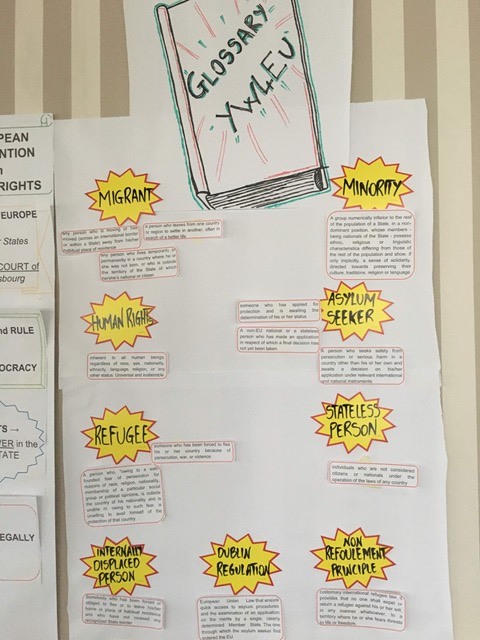 GLOSSARY
YW4EU
PEAN
NTION
RIGHTS
EUROPE
r States
COURT of
sbourg
nd RULE
OCRACY
TS →
VER in the
TATE
EGALLY
MIGRANT
Any person who is moving or has
moved (across an international border
or within a State) away from his/her
habitual place of residence
A person who leaves from one country
or region to settle in another, often in
search of a better life
Any person who lives temporarily or
permanently in a country where he or she
was not born, or who is outside
the territory of the State of which
he/she's national or citizen
MINORITY
A group numerically inferior to the rest
of the population of a State, in a non-
dominant position, whose members -
being nationals of the State - possess
ethnic, religious or linguistic
characteristics differing from those of
the rest of the population and show, if
only implicitly, a sense of solidarity,
directed towards preserving their
culture, traditions, religion or language
HUMAN RIGHTS
inherent to all human beings
regardless of race, sex, nationality,
ethnicity, language, religion, or any
other status. Universal and inalienable
ASYLUM
SEEKER
someone who has applied for
protection and is awaiting the
determination of his or her status
A non-EU national or a stateless
person who has made an application
in respect of which a final decision has
not yet been taken.
A person who seeks safety from
persecution or serious harm in a
country other than his or her own and
awaits a decision on his/her
application under relevant international
and national instruments
REFUGEE
someone who has been forced to flee
his or her country because of
persecution, war, or violence
A person who, "owing to a well-
founded fear of persecution for
reasons of race, religion, nationality,
membership of a particular social
group or political opinions, is outside
the country of his nationality and is
unable or, owing to such fear, is
unwilling to avail himself of the
protection of that country
STATELESS
PERSON
individuals who are not considered
citizens or nationals under the
operation of the laws of any country
INTERNALLY
DISPLACED
PERSON
Someone who has been forced or
obliged to flee or to leave his/her
home or place of habitual residence,
and who have not crossed any
recognized State border
DUBLIN
REGULATION
European Union Law that ensure
quick access to asylum procedures
and the examination of an application
on the merits by a single, clearly
determined Member State. The one
through which the asylum seeker first
entered the EU.
NON
REFOULEMENT
PRINCIPLE
customary international refugee law, it
provides that no one shall expel or
return a refugee against his or her will,
in any manner whatsoever, to a
territory where he or she fears threats
to life or freedom.